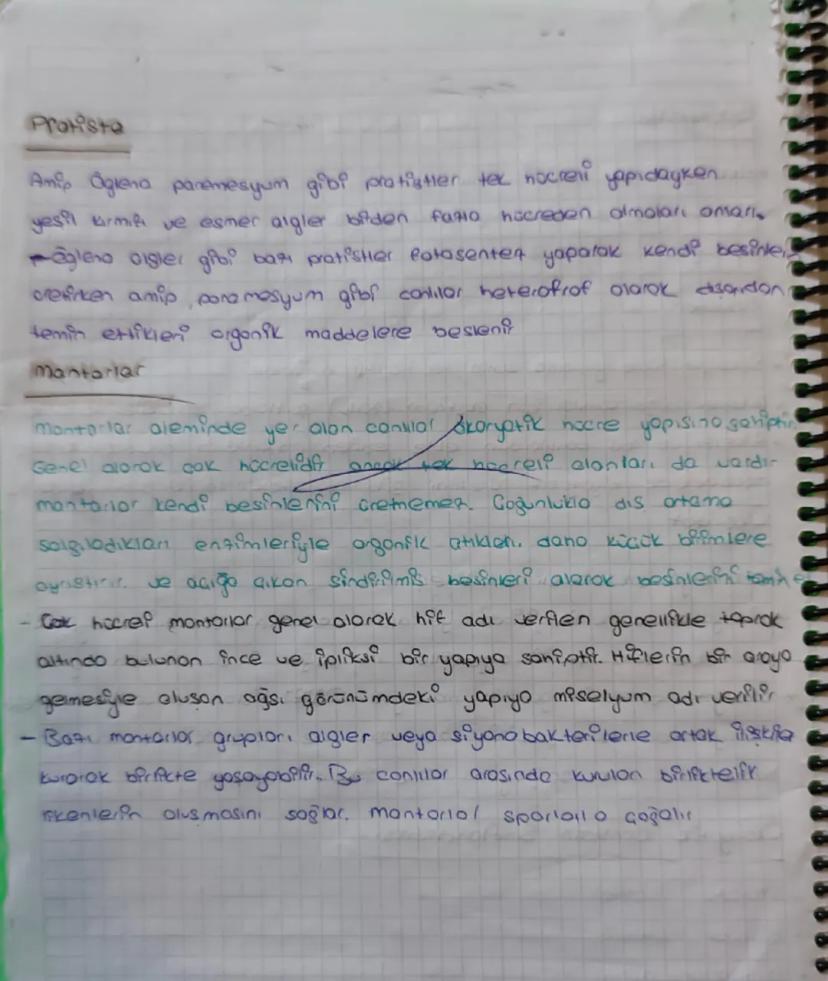 Protista
Amip Öglena paramesyum gibi protistler tek hücreli yapıdayken
yeşil kırmızı ve esmer algler birden fazla hücreden olmaları
Öglena algler gibi bazı protistler fotosentez yaparak kendi besinleri
üretirken amip, paramesyum gibi canlılar heterotrof olarak dışarıdan
temin ettikleri organik maddelere beslenir
Mantarlar
Mantarlar aleminde yer alan canlılar ökaryatik hücre yapısına sahiptir
Genel olarak çok hücrelidir ancak tek hücreli olanları da vardır
mantarlar kendi besinlerini üretmemez. Çoğunlukla dış ortama
salgıladıkları enzimleriyle organik atıkları daha küçük birimlere
ayrıştırır ve açığa çıkan sindirilmiş besinleri alarak besinlerini temin e
- Çok hücreli mantarlar genel olarak hif adı verilen genellikle toprak
altında bulunan ince ve ipliksi bir yapıya sahiptir. Hiflerin bir araya
gelmesiyle oluşan ağsı görünümdeki yapıya miselyum adı verilir
- Bazı mantarlar grupları algler veya siyanobakterilerle ortak ilişkiler
kurarak birlikte yaşayabilir. Bu canlılar arasında kurulan birliktelik
likenlerin oluşmasını sağlar. mantarlar sporlarla çoğalır